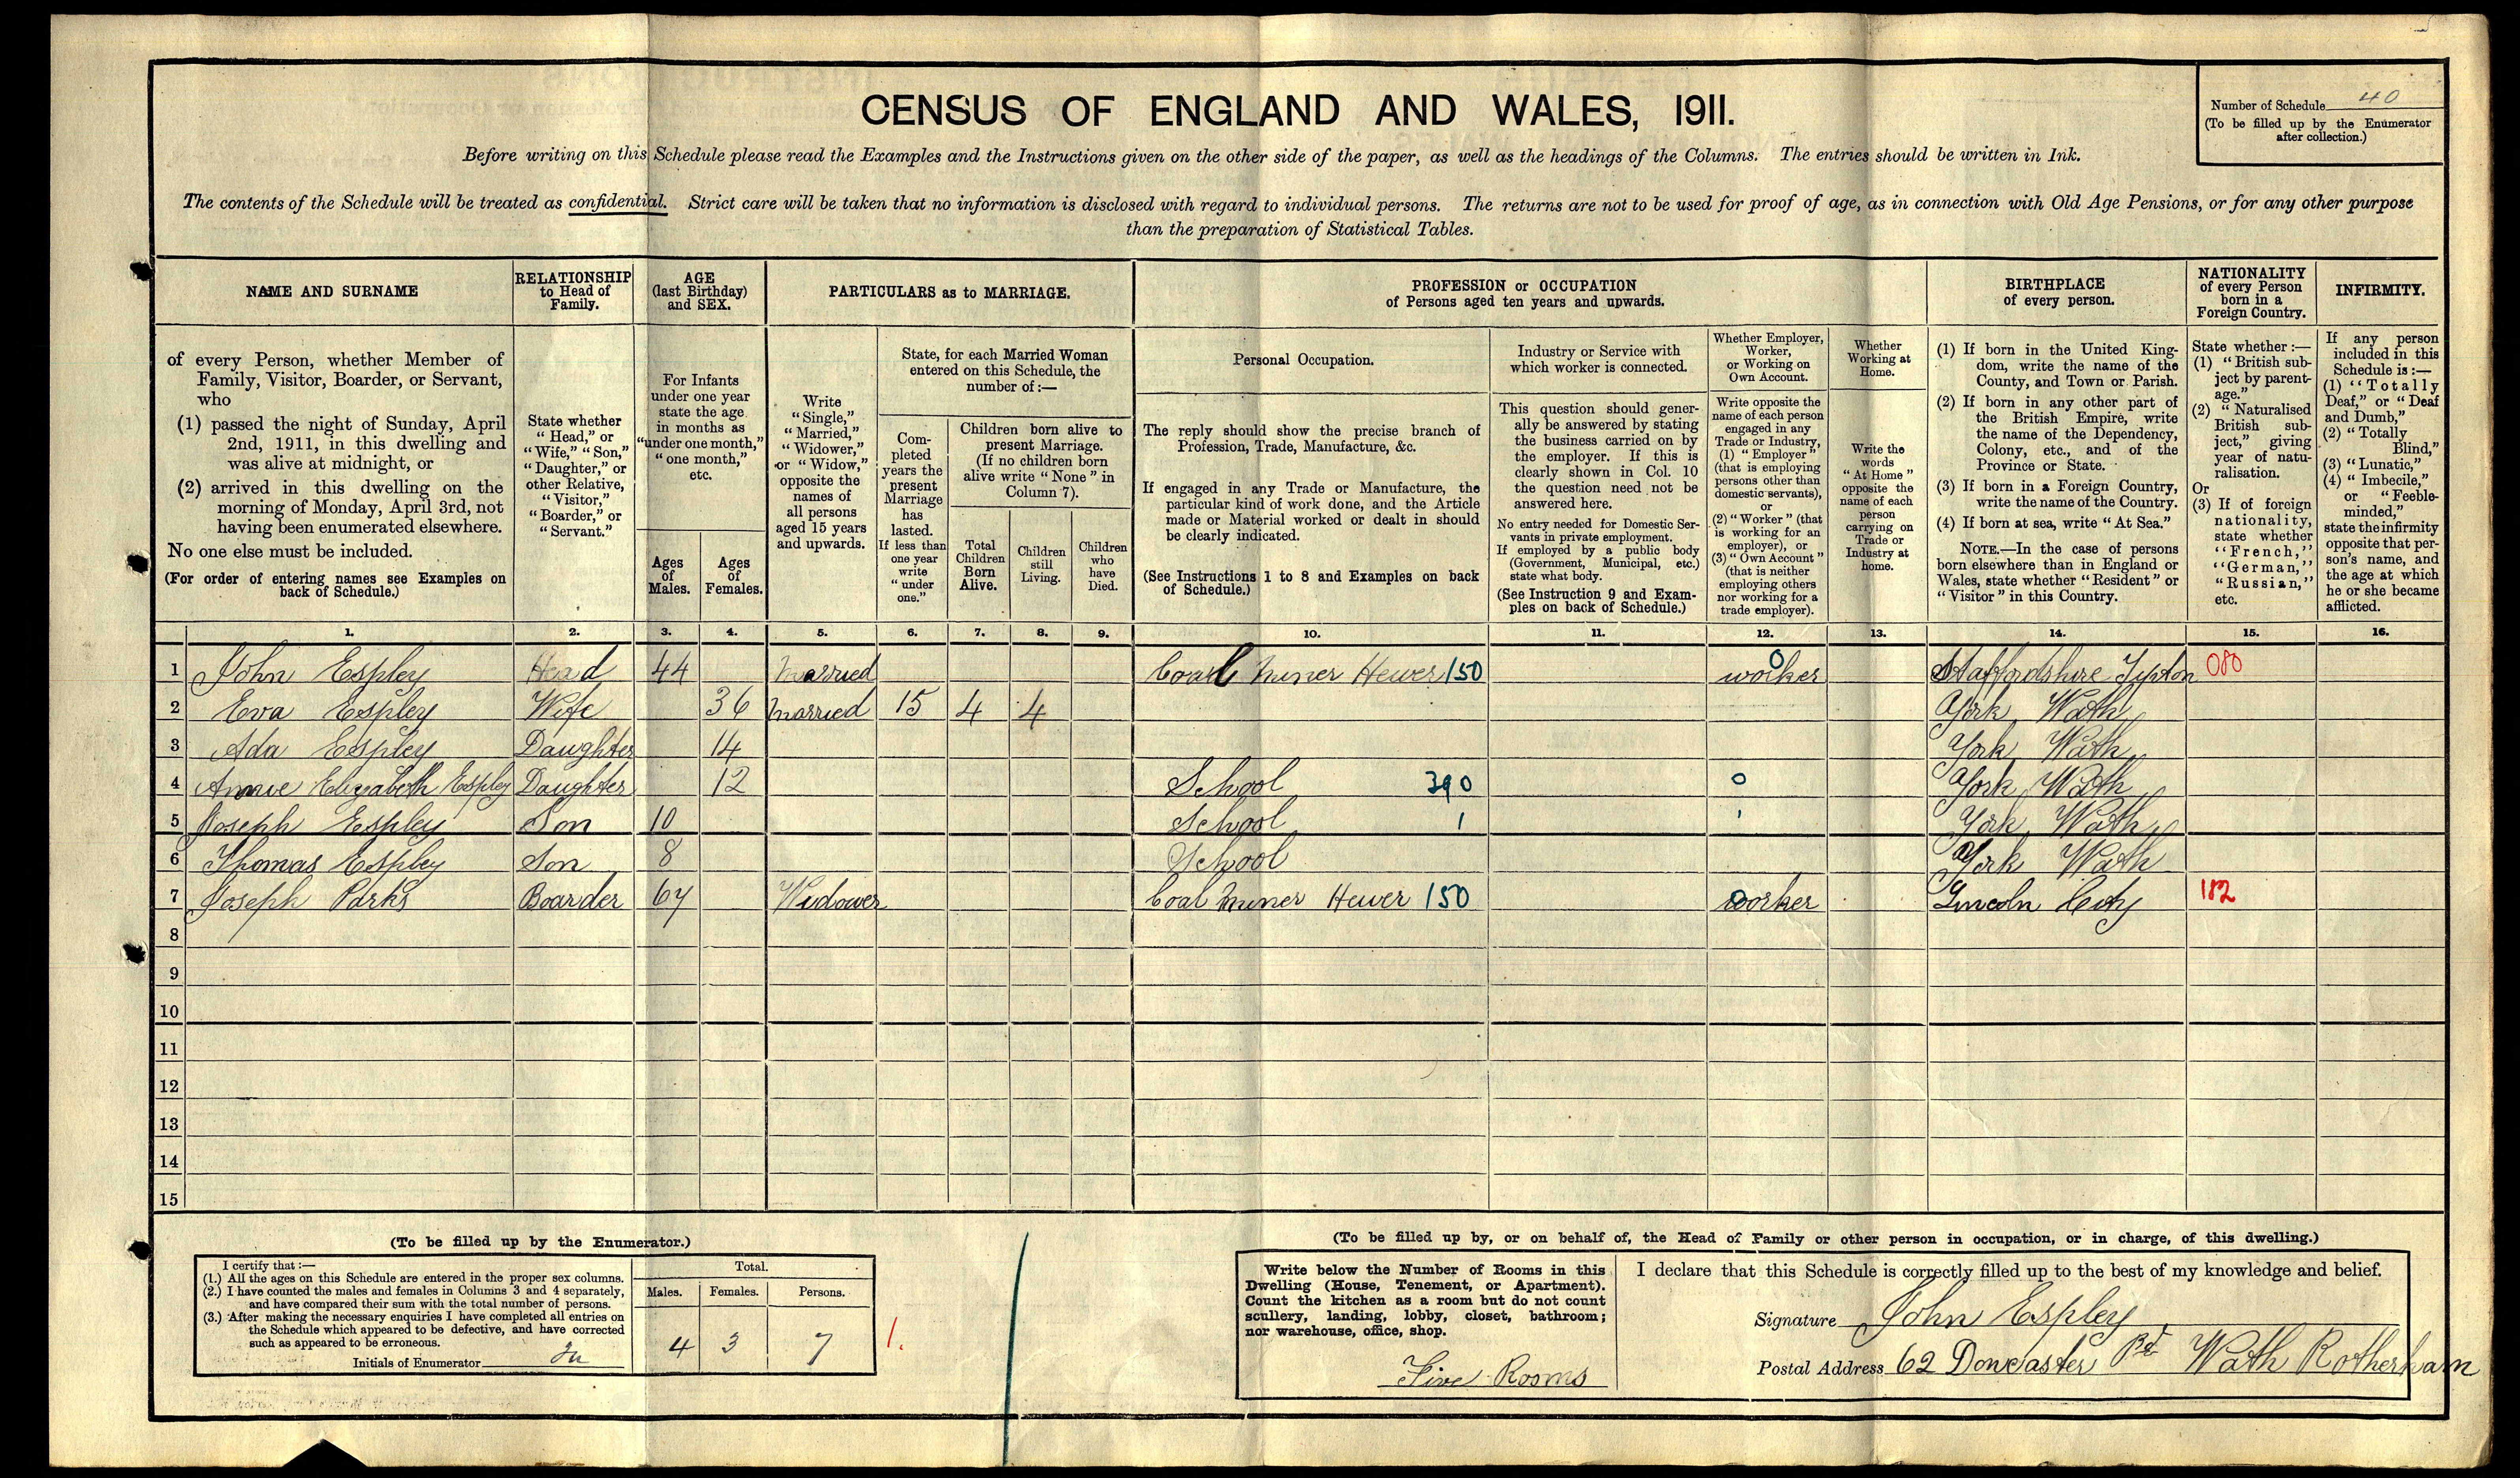 Number of Schedule 40
(To be filled up by the Enumerator
after collection.)
CENSUS OF ENGLAND AND WALES, 1911.
Before writing on this Schedule please read the Examples and the Instructions given on the other side of the paper, as well as the headings of the Columns. The entries should be written in Ink.
The contents of the Schedule will be treated as confidential. Strict care will be taken that no information is disclosed with regard to individual persons. The returns are not to be used for proof of age, as in connection with Old Age Pensions, or for any other purpose
than the preparation of Statistical Tables.
NAME AND SURNAME
of every Person, whether Member of
Family, Visitor, Boarder, or Servant,
who
(1) passed the night of Sunday, April
2nd, 1911, in this dwelling and
was alive at midnight, or
(2) arrived in this dwelling on the
morning of Monday, April 3rd, not
having been enumerated elsewhere.
No one else must be included.
(For order of entering names see Examples on
back of Schedule.)
RELATIONSHIP
to Head of
Family.
State whether
"Head," or
"Wife," "Son,"
"Daughter," or
other Relative,
"Visitor,"
"Boarder," or
"Servant."
AGE
(last Birthday)
and SEX.
For Infants
under one year
state the age
in months as
"under one month,"
"one month,"
etc.
Ages
of
Males.
Ages
of
Females.
PARTICULARS as to MARRIAGE.
Write
"Single,"
"Married,"
"Widower,"
or "Widow,"
opposite the
names of
all persons
aged 15 years
and upwards.
State, for each Married Woman
entered on this Schedule, the
number of:—
Com-
pleted
years the
present
Marriage
has
lasted.
If less than
one year
write
"under
one."
Children born alive to
present Marriage.
(If no children born
alive write "None" in
Column 7).
Total
Children
Born
Alive.
Children
still
Living.
Children
who
have
Died.
PROFESSION or OCCUPATION
of Persons aged ten years and upwards.
Personal Occupation.
The reply should show the precise branch of
Profession, Trade, Manufacture, &c.
If engaged in any Trade or Manufacture, the
particular kind of work done, and the Article
made or Material worked or dealt in should
be clearly indicated.
(See Instructions 1 to 8 and Examples on back
of Schedule.)
Industry or Service with
which worker is connected.
This question should gener-
ally be answered by stating
the business carried on by
the employer. If this is
clearly shown in Col. 10
the question need not be
answered here.
No entry needed for Domestic Ser-
vants in private employment.
If employed by a public body
(Government, Municipal, etc.)
state what body.
(See Instruction 9 and Exam-
ples on back of Schedule.)
Whether Employer,
Worker,
or Working on
Own Account.
Write opposite the
name of each person
engaged in any
Trade or Industry,
(1) "Employer"
(that is employing
persons other than
domestic servants),
or
(2) "Worker" (that
is working for an
employer), or
(3) "Own Account"
(that is neither
employing others
nor working for a
trade employer).
Whether
Working at
Home.
Write the
words
"At Home"
opposite the
name of each
person
carrying on
Trade or
Industry at
home.
BIRTHPLACE
of every person.
(1) If born in the United King-
dom, write the name of the
County, and Town or Parish.
(2) If born in any other part of
the British Empire, write
the name of the Dependency,
Colony, etc., and of the
Province or State.
(3) If born in a Foreign Country,
write the name of the Country.
(4) If born at sea, write "At Sea."
NOTE.—In the case of persons
born elsewhere than in England or
Wales, state whether "Resident" or
"Visitor" in this Country.
NATIONALITY
of every Person
born in a
Foreign Country.
State whether:—
(1) "British sub-
ject by parent-
age."
(2) "Naturalised
British sub-
ject," giving
year of natu-
ralisation.
Or
(3) If of foreign
nationality,
state whether
"French,"
"German,"
"Russian,"
etc.
INFIRMITY.
If any person
included in this
Schedule is:—
(1) "Totally
Deaf," or "Deaf
and Dumb,"
(2) "Totally
Blind,"
(3) "Lunatic,"
(4) "Imbecile,"
or "Feeble-
minded,"
state the infirmity
opposite that per-
son's name, and
the age at which
he or she became
afflicted.
1. 2. 3. 4. 5. 6. 7. 8. 9. 10. 11. 12. 13. 14. 15. 16.
1 John Espley Head 44 Married Coal Miner Hewer 150 worker 0 Staffordshire Tipton 080
2 Eva Espley Wife 36 Married 15 4 4 York Wath
3 Ada Espley Daughter 14 York Wath
4 Annie Elizabeth Espley Daughter 12 School 390 0 York Wath
5 Joseph Espley Son 10 School 1 ' York Wath
6 Thomas Espley Son 8 School York Wath
7 Joseph Parks Boarder 67 Widower Coal Miner Hewer 150 worker Lincoln City 182
8
9
10
11
12
13
14
15
(To be filled up by the Enumerator.)
I certify that:—
(1.) All the ages on this Schedule are entered in the proper sex columns.
(2.) I have counted the males and females in Columns 3 and 4 separately,
and have compared their sum with the total number of persons.
(3.) After making the necessary enquiries I have completed all entries on
the Schedule which appeared to be defective, and have corrected
such as appeared to be erroneous.
Initials of Enumerator
Total.
Males. Females. Persons.
4 3 7 1.
(To be filled up by, or on behalf of, the Head of Family or other person in occupation, or in charge, of this dwelling.)
Write below the Number of Rooms in this
Dwelling (House, Tenement, or Apartment).
Count the kitchen as a room but do not count
scullery, landing, lobby, closet, bathroom;
nor warehouse, office, shop.
Five Rooms
I declare that this Schedule is correctly filled up to the best of my knowledge and belief.
Signature John Espley
Postal Address 62 Doncaster Rd Wath Rotherham